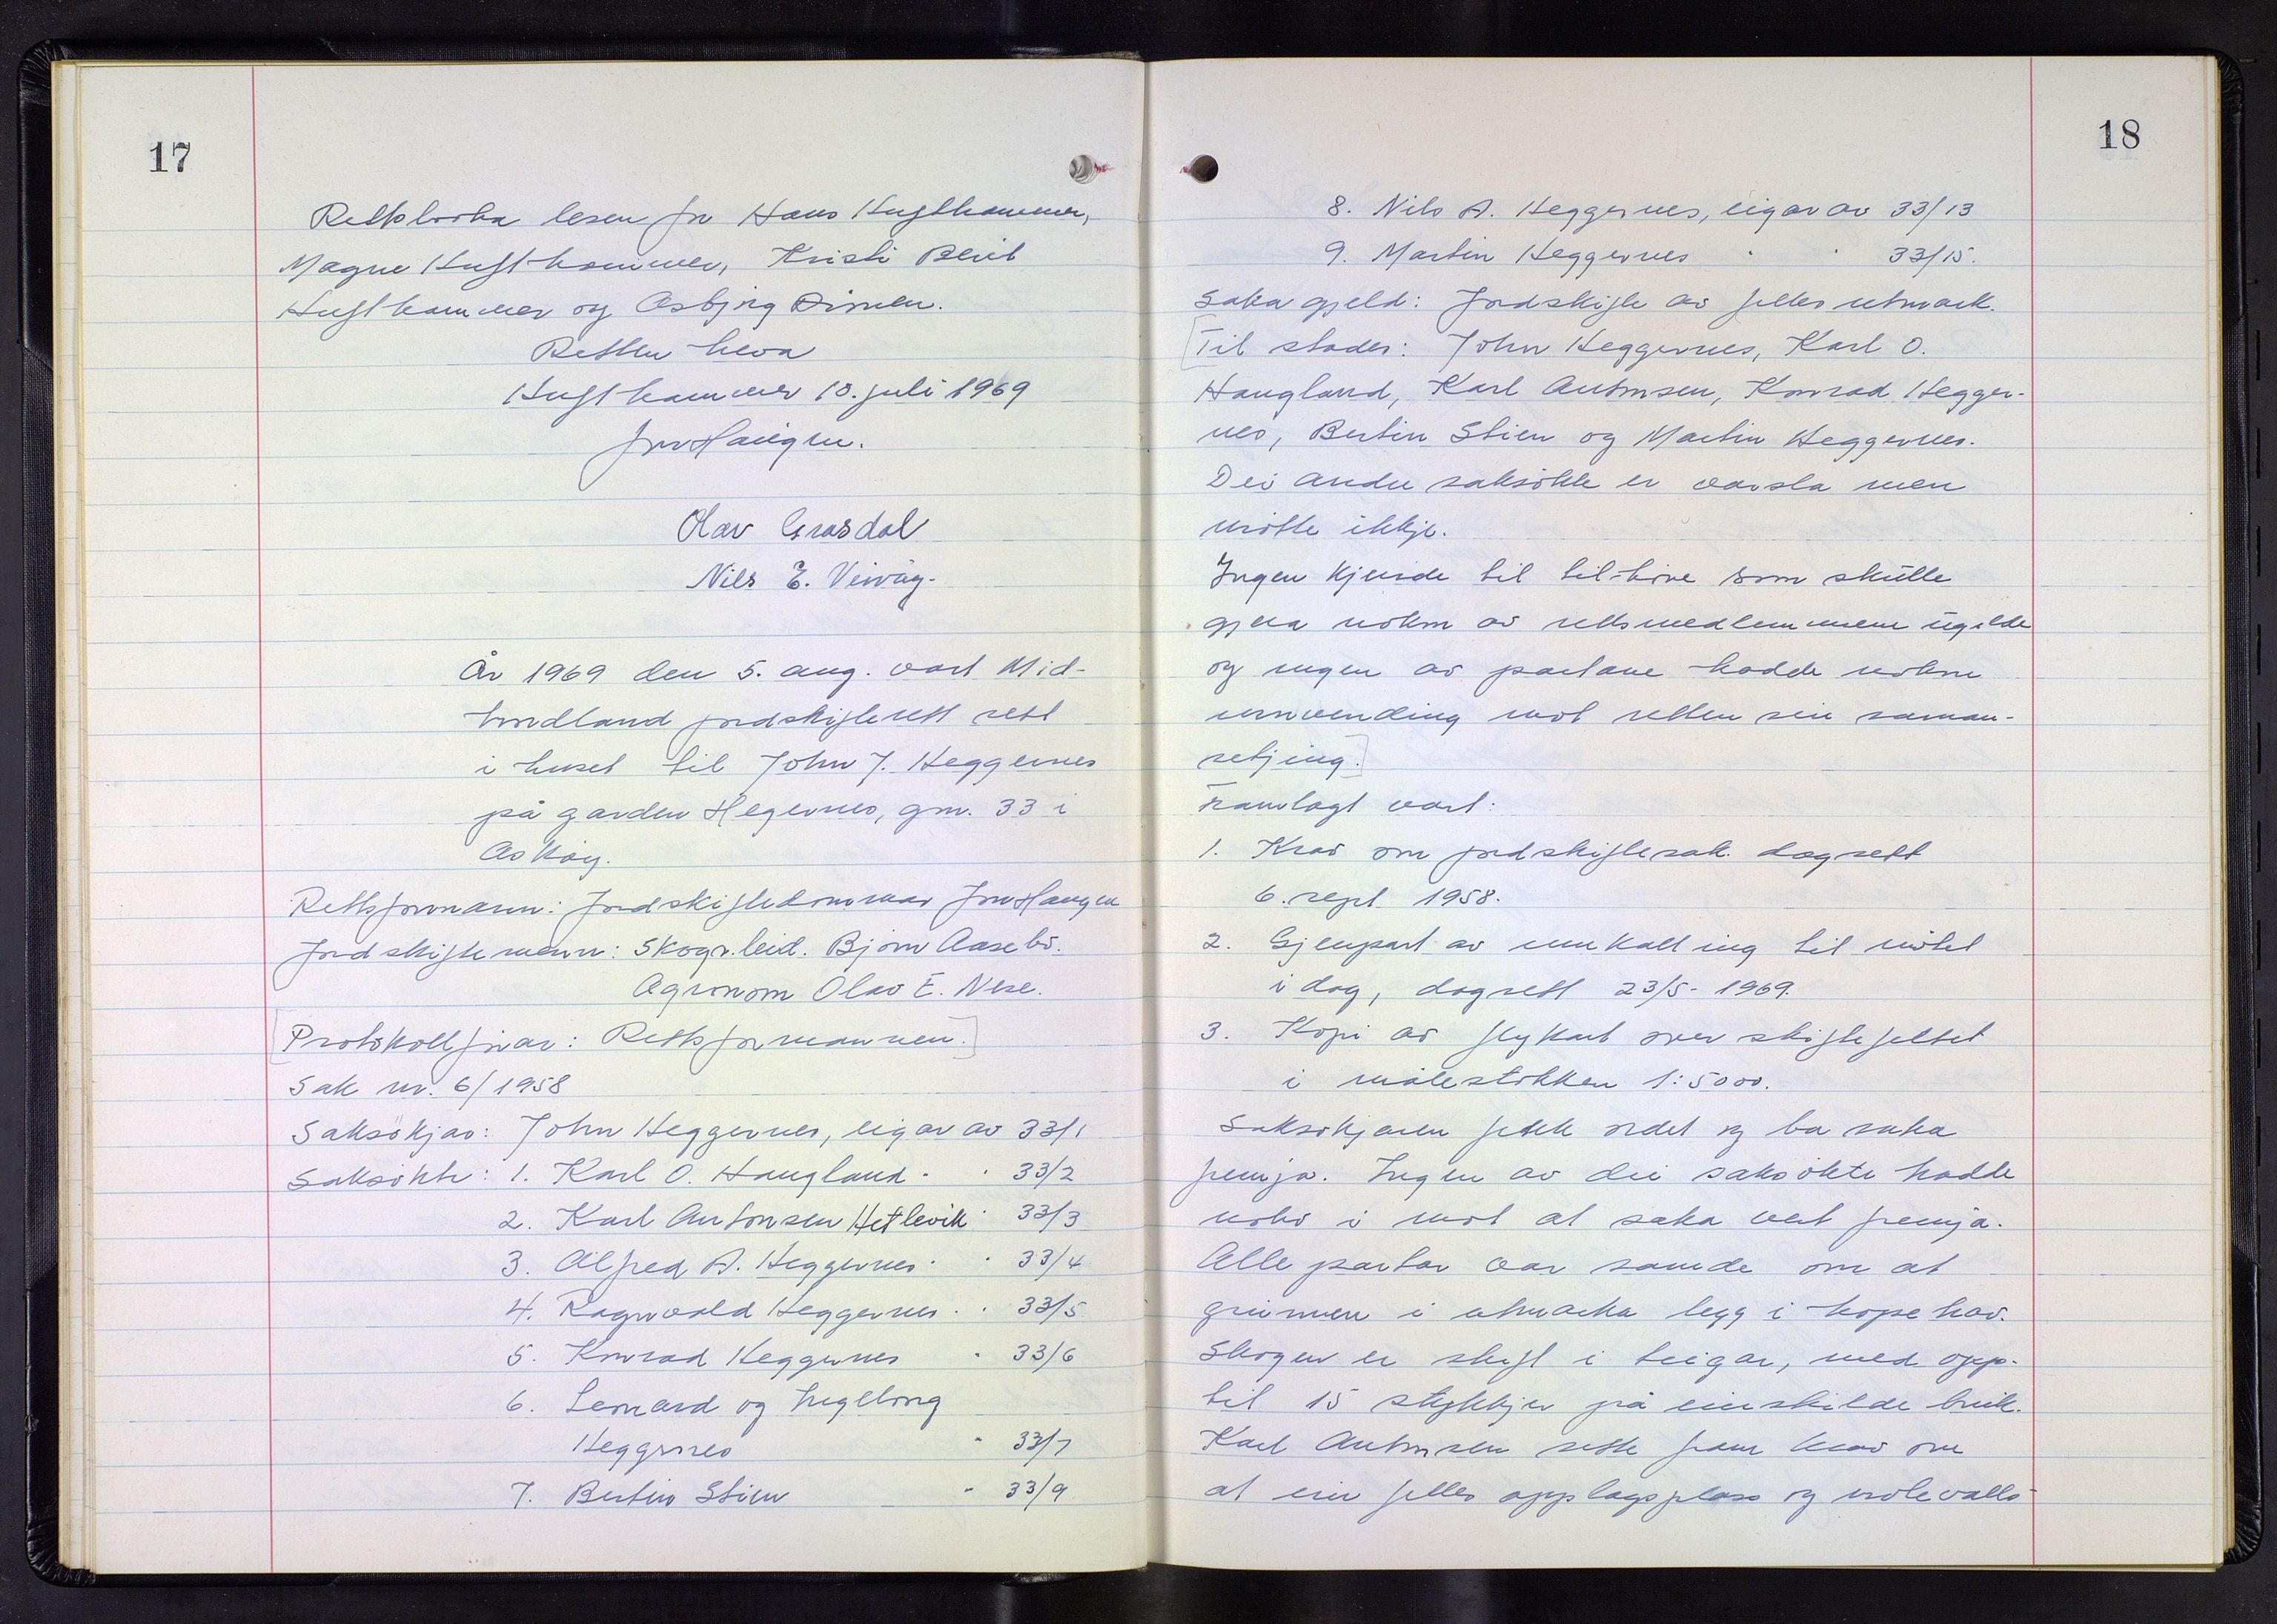 17
Rettsboka lesen for Hans Hufthammer,
Magne Hufthammer, Kristi Berit
Hufthammer og Asbjørg Dimen.
Retten heva
Hufthammer 10. juli 1969
Jon Haugen.
Olav Grasdal
Nils E. Veivåg.
År 1969 den 5. aug. vart Mid-
hordland jordskifterett sett
i huset til John J. Heggernes
på garden Hegernes, gnr. 33 i
Askøy.
Rettsformann: Jordskiftedommar Jon Haugen
Jordskiftemenn: Skogr.leid. Bjørn Aasebø.
Agronom Olav E. Nese.
[Protokollførar: Rettsformannen.]
Sak nr. 6/1958
Saksökjar: John Heggernes, eigar av 33/1
Saksökte: 1. Karl O. Haugland - " 33/2
2. Karl Antonsen Hetlevik " 33/3
3. Alfred A. Heggernes " " 33/4
4. Ragnvald Heggernes " " 33/5
5. Konrad Heggernes " 33/6
6. Leonard og Ingeborg
Heggernes " 33/7
7. Bertin Stien " 33/9
18
8. Nils A. Heggernes, eigar av 33/13
9. Martin Heggernes " " 33/15.
Saka gjeld: Jordskifte av felles utmark.
[Til stades: John Heggernes, Karl O.
Haugland, Karl Antonsen, Konrad Hegger-
nes, Bertin Stien og Martin Heggernes.
Dei andre saksökte er varsla men
møtte ikkje.
Ingen kjende til tilhøve som skulle
gjera nokon av rettsmedlemmene ugilde
og ingen av partane hadde nokon
innvending mot retten sin saman-
setjing.]
Framlagt vart:
1. Krav om jordskiftesak dagsett
6. sept. 1958.
2. Gjenpart av innkalling til møtet
i dag, dagsett 23/5-1969.
3. Kopi av flykart over skiftefeltet
i målestokken 1:5000.
Saksøkjaren fekk ordet og ba saka
fremja. Ingen av dei saksökte hadde
noko i mot at saka vert fremja.
Alle partar var samde om at
grunnen i utmarka legg i hopehav.
Skogen er skift i teigar, med opp-
til 15 stykkjer på einskilde bruk.
Karl Antonsen sette fram krav om
at ein felles opplagsplass og